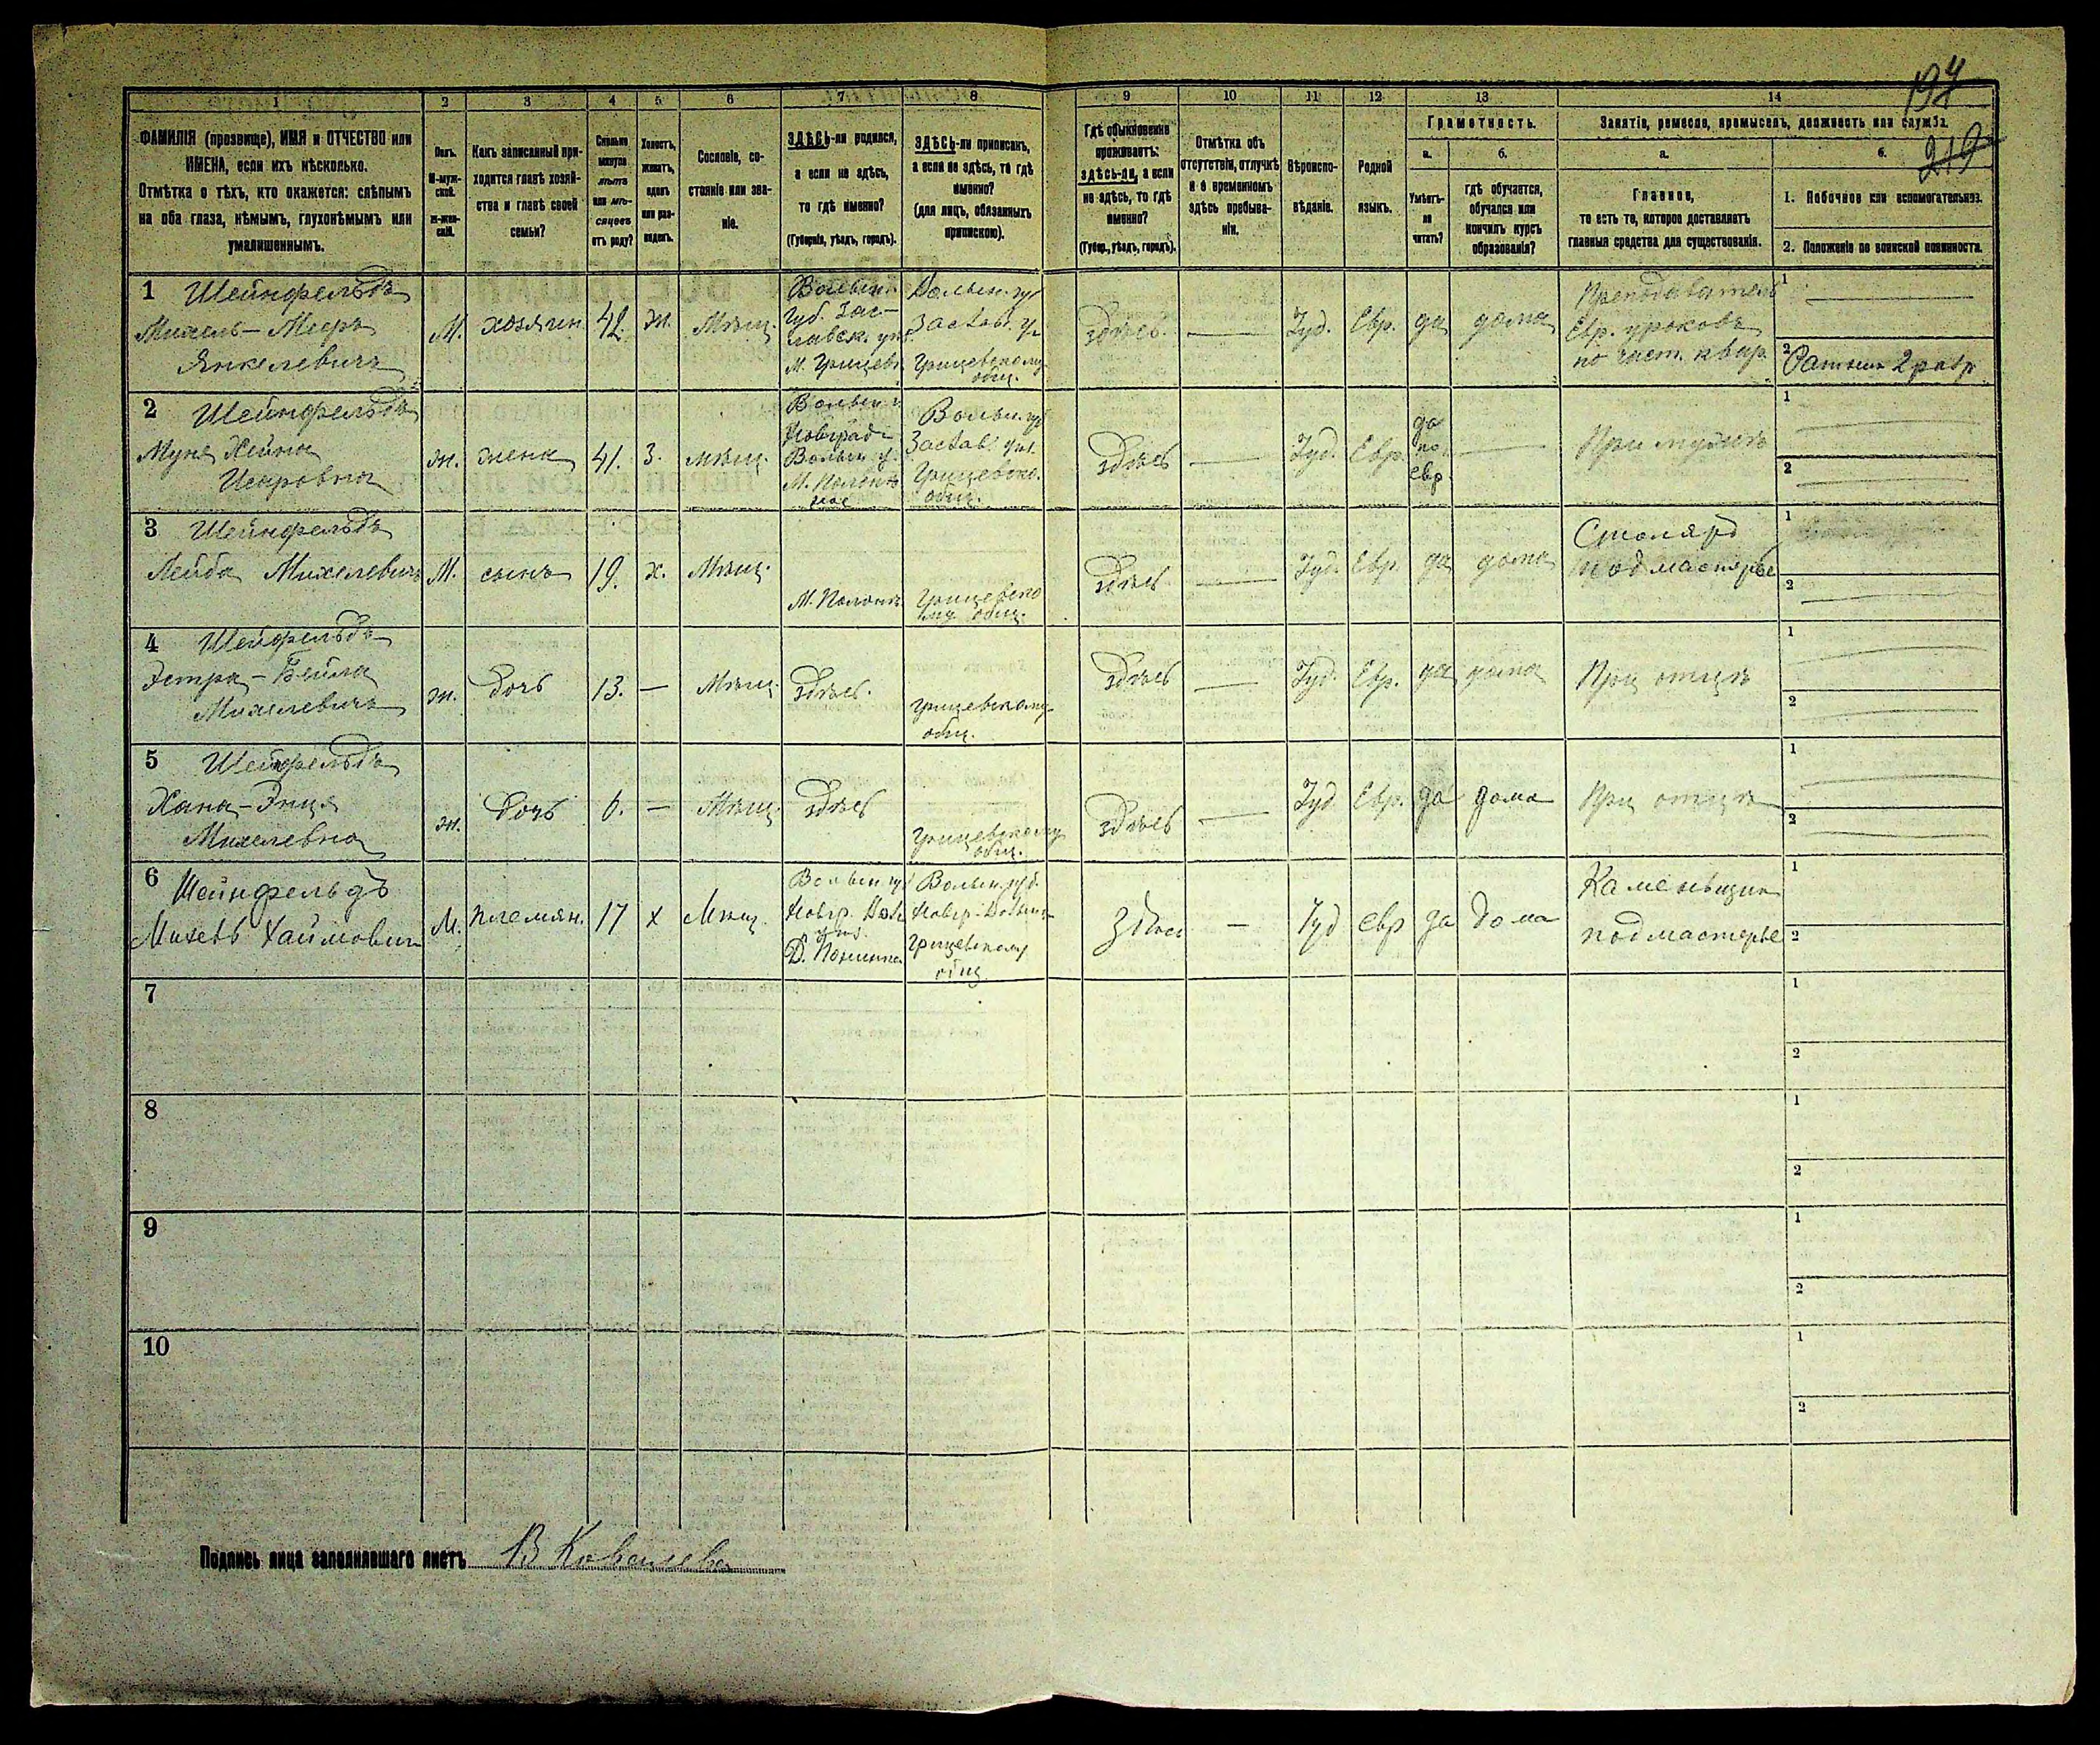 194
219
1 2 3 4 5 6 7 8 9 10 11 12 13 14
ФАМИЛІЯ (прозвище), ИМЯ и ОТЧЕСТВО или
ИМЕНА, если ихъ нѣсколько.
Отмѣтка о тѣхъ, кто окажется: слѣпымъ
на оба глаза, нѣмымъ, глухонѣмымъ или
умалишеннымъ.
Полъ.
М-муж-
ской.
ж-жен-
скій.
Какъ записанный при-
ходится главѣ хозяй-
ства и главѣ своей
семьи?
Сколько
минуло
лѣтъ
или мѣ-
сяцевъ
отъ роду?
Холостъ,
женатъ,
вдовъ
или раз-
веденъ.
Сословіе, со-
стояніе или зва-
ніе.
ЗДѢСЬ-ли родился,
а если не здѣсь,
то гдѣ именно?
(Губернія, уѣздъ, городъ).
ЗДѢСЬ-ли приписанъ,
а если не здѣсь, то гдѣ
именно?
(для лицъ, обязанныхъ
припискою).
Гдѣ обыкновенно
проживаетъ:
здѣсь-ли, а если
не здѣсь, то гдѣ
именно?
(Губер., уѣздъ, городъ).
Отмѣтка объ
отсутствіи, отлучкѣ
и о временномъ
здѣсь пребыва-
ніи.
Вѣроиспо-
вѣданіе.
Родной
языкъ.
Грамотность.
а.
Умѣетъ-
ли
читать?
б.
гдѣ обучается,
обучался или
кончилъ курсъ
образованія?
Занятіе, ремесло, промыселъ, должность или служба.
а.
Главное,
то есть то, которое доставляетъ
главныя средства для существованія.
б.
1. Побочное или вспомогательное.
2. Положеніе по воинской повинности.
1 Шейнфельдъ
Михель-Мееръ
Янкелевичъ
М.
хозяин
42.
ж.
Мѣщ.
Волын.
Губ. Зас-
лавск. уѣз.
М. Грицевъ
Волын. гу
Заслав. у
Грицевскому
общ.
здѣсь
Іуд.
Евр.
да
дома
Преподаватель
Евр. уроковъ
по част. квар.
1
2 Ратник 2 разр
2 Шейнфельдъ
Хейна
ж.
жена
41.
З.
мѣщ.
Волын
Новград
Волын у.
М. Полон
ное
Волын. гу
Заслав. уѣз.
Грицевско.
общ.
здѣсь
Іуд.
Евр.
да
по
евр.
При мужѣ
1
2
3 Шейнфельдъ
Лейба Михелевичъ
М.
сынъ
19.
х.
Мѣщ.
М. Полонн
Грицевско
му общ.
здѣсь
Іуд.
Евр.
да
дома
Столяръ
подмастерье
1
2
4 Шейфельдъ
Эстра-Бейла
Михелевичъ
ж.
дочь
13.
—
Мѣщ.
здѣсь.
Грицевскому
общ.
здѣсь
Іуд.
Евр.
да
дома
При отцѣ
1
2
5 Шейнфельдъ
Хана-Энця
Михелевна
ж.
дочь
6.
—
Мѣщ.
здѣсь
Грицевскому
общ.
здѣсь
Іуд
Евр.
да
дома
При отцѣ
1
2
6 Шейнфельдъ
Михель Хаймович
М.
племян.
17
х
Мѣщ.
Волын гу
Новгр. Вол
уѣз.
Д. Понинка
Волын. губ.
Новгр-Волын
Грицевскому
общ
здѣсь
—
Іуд
евр
да
дома
Каменьщик
подмастерье
1
2
7
1
2
8
1
2
9
1
2
10
1
2
Подпись лица заполнявшаго листъ